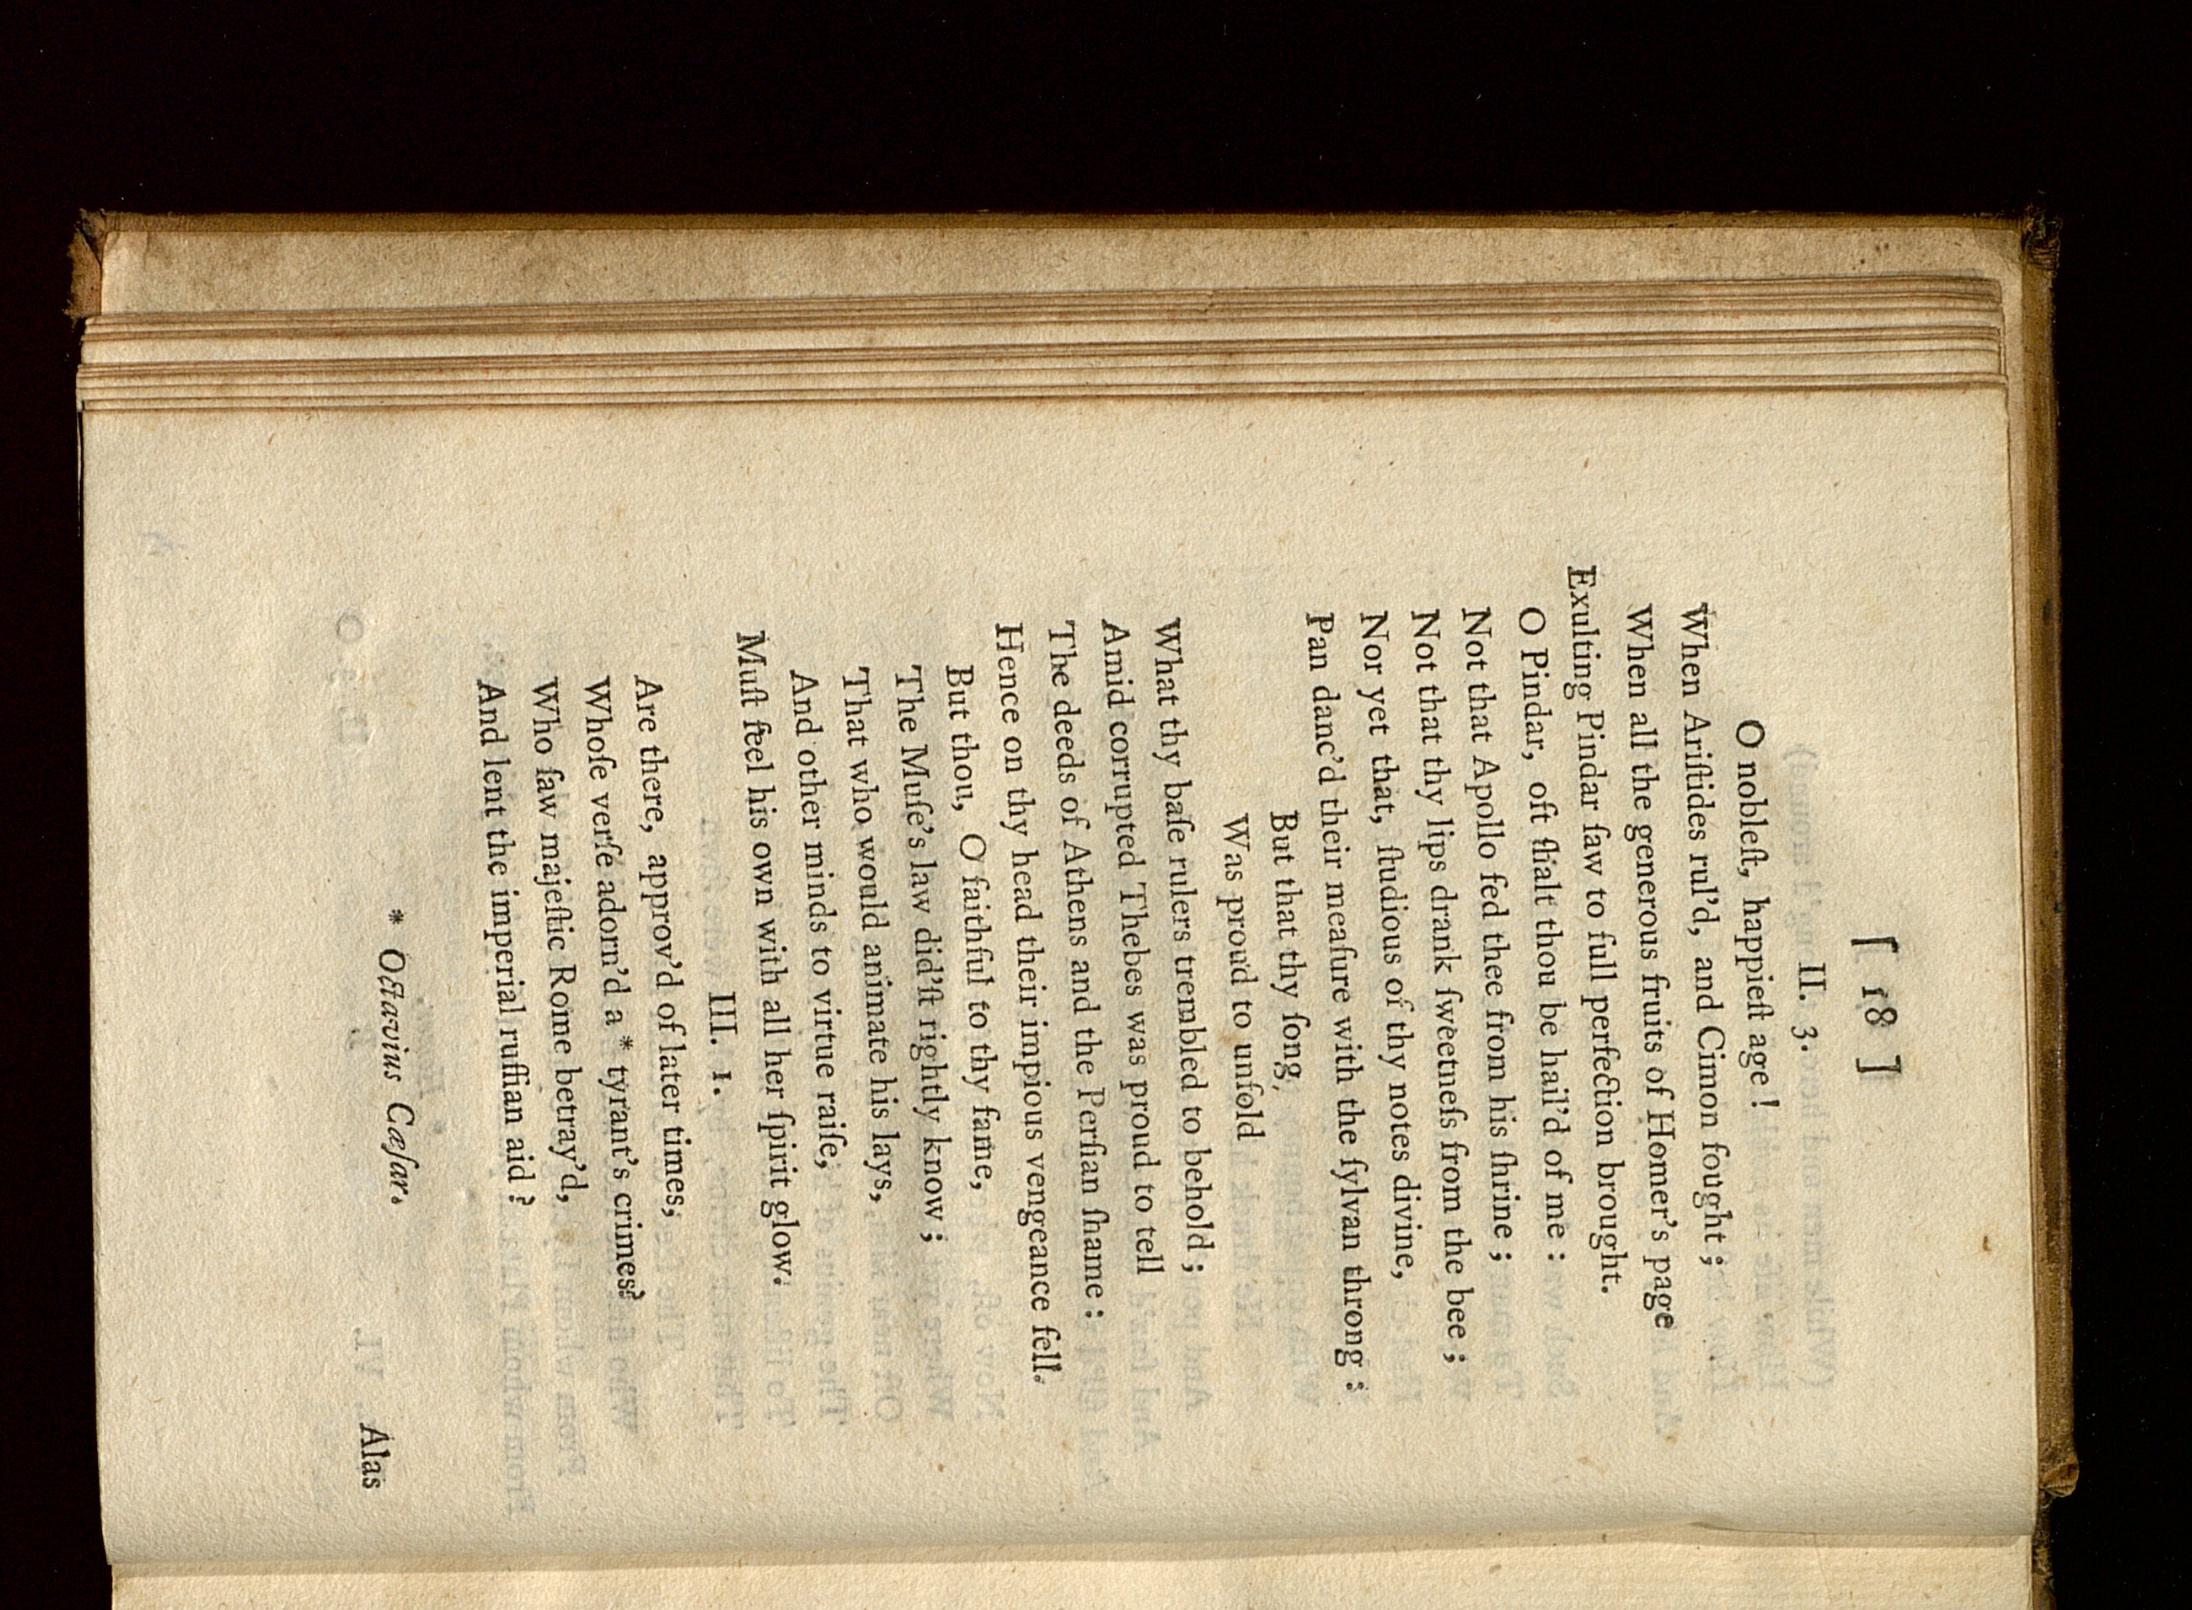 [ 18 ]
II. 3.
O nobleſt, happieſt age!
When Ariſtides rul'd, and Cimon fought;
When all the generous fruits of Homer's page
Exulting Pindar ſaw to full perfection brought.
O Pindar, oft ſhalt thou be hail'd of me:
Not that Apollo fed thee from his ſhrine;
Not that thy lips drank ſweetneſs from the bee;
Nor yet that, ſtudious of thy notes divine,
Pan danc'd their meaſure with the ſylvan throng:
But that thy ſong,
Was proud to unfold
What thy baſe rulers trembled to behold;
Amid corrupted Thebes was proud to tell
The deeds of Athens and the Perſian ſhame:
Hence on thy head their impious vengeance fell.
But thou, O faithful to thy fame,
The Muſe's law did'ſt rightly know;
That who would animate his lays,
And other minds to virtue raiſe,
Muſt feel his own with all her ſpirit glow.
III. 1.
Are there, approv'd of later times,
Whoſe verſe adorn'd a * tyrant's crimes?
Who ſaw majeſtic Rome betray'd,
And lent the imperial ruffian aid?
* Octavius Cæſar.
Alas